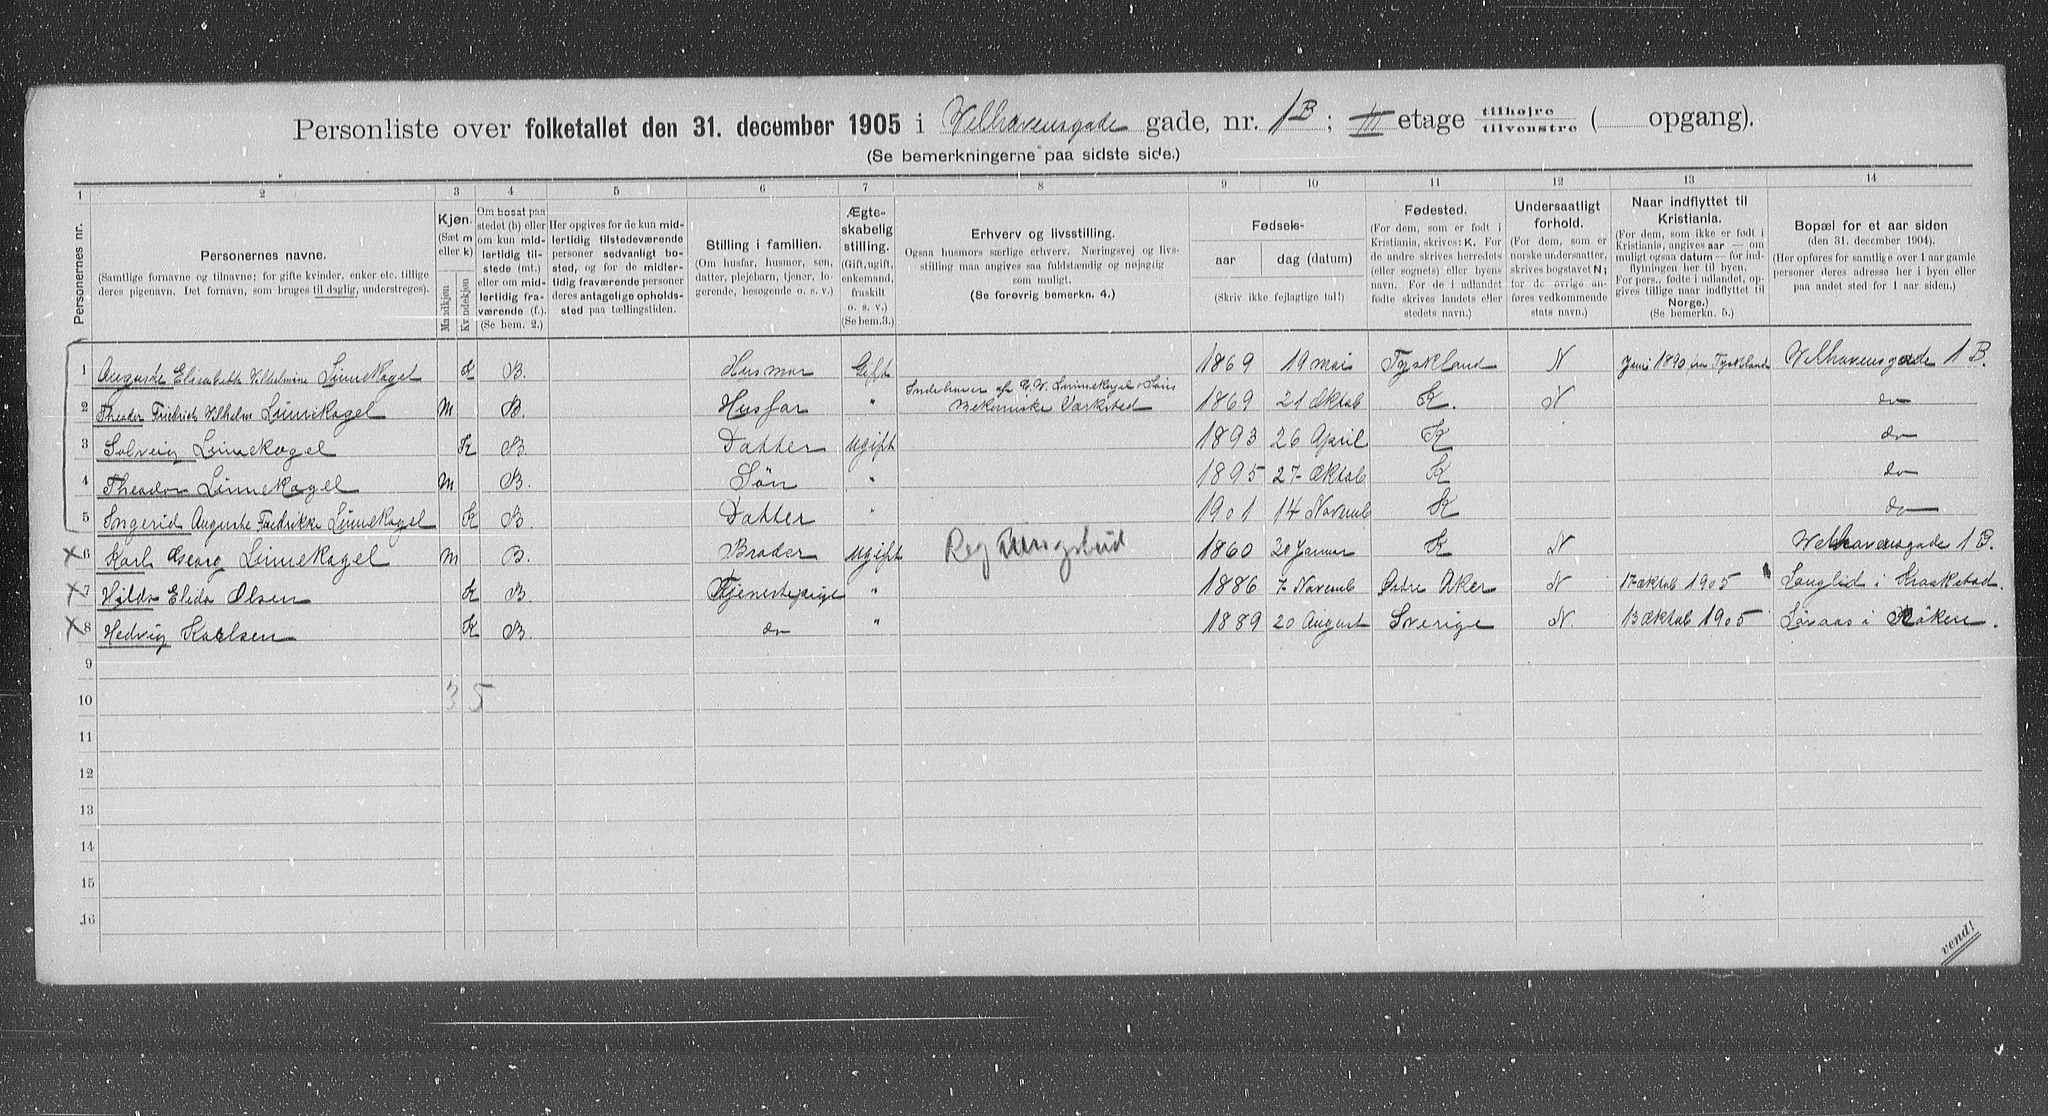 Personliste over folketallet den 31. december 1905 i Velhavensgade gade, nr. 1B; III etage tilhøjre / tilvenstre ( opgang).
(Se bemerkningerne paa sidste side.)
1 2 3 4 5 6 7 8 9 10 11 12 13 14
Personernes nr.
Personernes navne. (Samtlige fornavne og tilnavne; for gifte kvinder, enker etc. tillige deres pigenavn. Det fornavn, som bruges til daglig, understreges).
Kjøn. (Sæt m eller k) Mandkjøn Kvindekjøn
Om bosat paa stedet (b) eller om kun midlertidig tilstede (mt.) eller om midlertidig fraværende (f.). (Se bem. 2.)
Her opgives for de kun midlertidig tilstedeværende personer sedvanligt bosted, og for de midlertidig fraværende personer deres antagelige opholdssted paa tællingstiden.
Stilling i familien. (Om husfar, husmor, søn, datter, plejebarn, tjener, logerende, besøgende o. s. v.)
Ægteskabelig stilling. (Gift, ugift, enkemand, fraskilt o. s. v.) (Se bem. 3.)
Erhverv og livsstilling. Ogsaa husmors særlige erhverv. Næringsvej og livsstilling maa angives saa fuldstændig og nøjagtig som muligt. (Se forøvrig bemerkn. 4.)
Fødsels- aar dag (datum) (Skriv ikke fejlagtige tal!)
Fødested. (For dem, som er født i Kristiania, skrives: K. For de andre skrives herredets (eller sognets) eller byens navn. For de i udlandet fødte skrives landets eller stedets navn.)
Undersaatligt forhold. (For dem, som er norske undersaatter, skrives bogstavet N; for de øvrige anføres vedkommende stats navn.)
Naar indflyttet til Kristiania. (For dem, som ikke er født i Kristiania, angives aar — om muligt ogsaa datum — for indflytningen her til byen. For pers., fødte i udlandet, opgives tillige naar indflyttet til Norge.) (Se bemerkn. 5.)
Bopæl for et aar siden (den 31. december 1904). (Her opføres for samtlige over 1 aar gamle personer deres adresse her i byen eller paa andet sted for 1 aar siden.)
1 Auguste Elisabeth Vilhelmine Linnekogel K B. Husmor Gift 1869 19 mai Tyskland N Juni 1890 Tyskland Velhavensgade 1 B.
2 Theodor Fredrich Vilhelm Linnekogel m B. Husfar " Indehaver af G. W. Linnekogel & Søns Mekaniske Værksted 1869 21 Oktob K. N do
3 Solveig Linnekogel K B Datter ugift 1893 26 April K do
4 Theodor Linnekogel m B. Søn " 1895 27 Oktob K do
5 Ingerid Auguste Fredrikke Linnekogel K B Datter " 1901 14 Novemb K do
X 6 Karl Georg Linnekogel m B. Broder ugift Regningsbud 1860 20 Januar K N Velhavensgade 1 B.
X 7 Hilda Elida Olsen K B. Tjenestepige " 1886 7 Novemb Østre Aker N 17 Oktob 1905 Langlid i Kraakstad.
X 8 Hedvig Karlsen K B. do " 1889 20 August Sverige N. 13 Oktob 1905 i Røken.
9
10 3 5
11
12
13
14
15
16
vend!